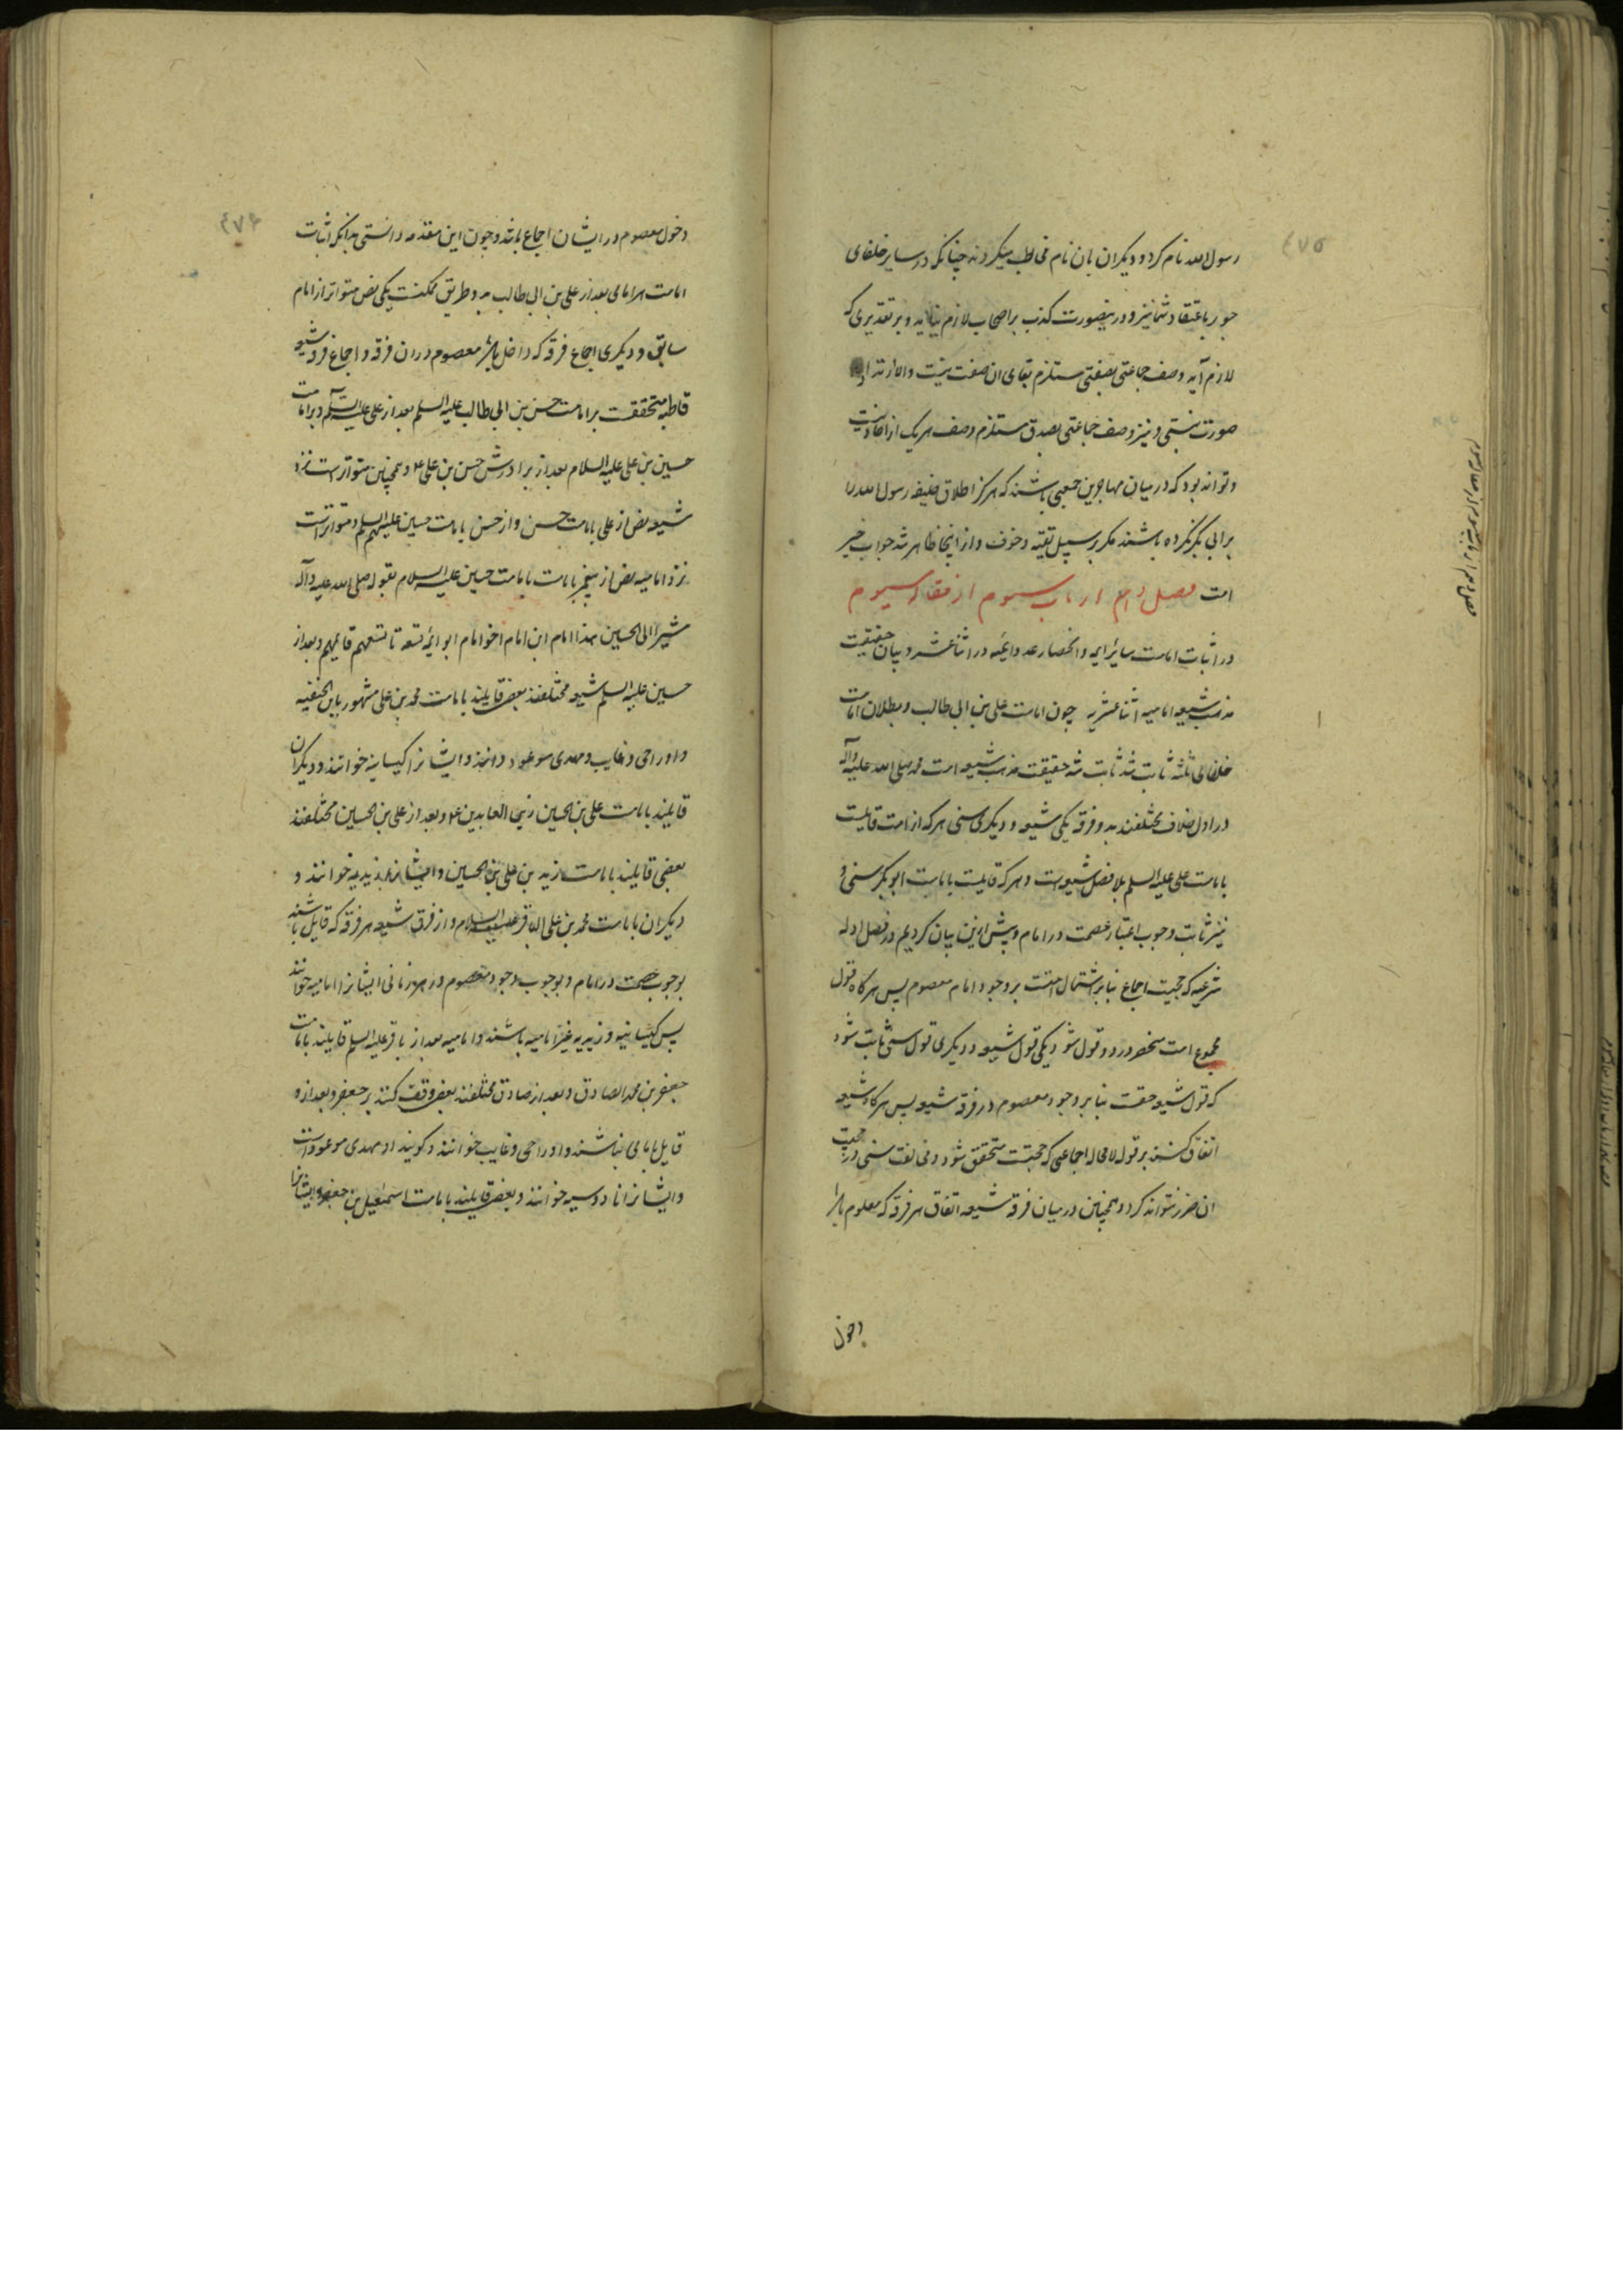 ٤٧٥
رسول الله نام کرد و دیکران بان نام مخاطب میکردند چنانکه در سایر خلفای
جور باعتقاد شما نیز و درینصورت کذب بر اصحاب لازم نیاید و بر تقدیری که
لازم آید وصف جماعتی بصفتی مستلزم بقای ان صفت نیست والا ارتداد
صورت نبستی و نیز وصف جماعتی بصدق مستلزم وصف هریک از احاد نیست
و تواند بود که در میان مهاجرین جمعی باشند که هرکز اطلاق خلیفه رسول الله را
بر ابی بکر نکرده باشند مکر بر سبیل تقیه و خوف و از اینجا ظاهر شد جواب خبر
امت فصل رابع از باب سیوم از مقاله سیوم
در اثبات امامت سائر ائمه و انحصار عدد ائمه در اثنا عشر و بیان حقیقت
مذهب شیعه امامیه اثنا عشریه چون امامت علی بن ابی طالب و بطلان امامت
خلفای ثلثه ثابت شد ثابت شد حقیقت مذهب شیعه امت محمد صلی الله علیه وآله
در اول خلاف مختلفند بدو فرقه یکی شیعه و دیکری سنی هرکه از امت قایلست
بامامت علی علیه السلم بلا فصل شیعه است و هرکه قایلست بامامت ابوبکر سنی و
نیز ثابت وجوب اعتبار عصمت در امام و پیش ازین بیان کردیم در فصل ادله
شرعیه که حجیت اجماع بنابر اشتمال امتست بر وجود امام معصوم پس هرکاه قول
مجموع امت منحصر در دو قول شود یکی قول شیعه و دیکری قول سنی ثابت شود
که قول شیعه حقست بنا بر وجود معصوم در فرقه شیعه پس هرکاه شیعه
اتفاق کنند بر قوله لامحاله اجماعی که حجتست متحقق شود و مخالفت سنی در حجیت
ان ضرر نتواند کرد و همچنین در میان فرقه شیعه اتفاق هر فرقه که معلوم باشد
دخول
٤٧٦
دخول معصوم در ایشان اجماع باشد و چون این مقدمه دانستی بدانکه اثبات
امامت هر امامی بعد از علی بن ابی طالب بدو طریق ممکنست یکی نص متواتر از امام
سابق و دیکری اجماع فرقه که داخل باشد معصوم دران فرقه و اجماع فرقه شیعه
قاطبه متحققست بر امامت حسن بن ابی طالب علیه السلم بعد از علی علیه السلم و بر امامت
حسین بن علی علیه السلام بعد از برادرش حسن بن علی ع و همچنین متواتر است نزد
شیعه نص از علی بامامت حسن و از حسن بامامت حسین علیهم السلم و متواتر است
نزد امامیه نص از پیغمبر بامامت بامامت حسین علیه السلام بقوله صلی الله علیه وآله
مشیرا الی الحسین هذا امام ابن امام اخو امام ابو ائمة تسعة تاسعهم قایمهم و بعد از
حسین علیه السلم شیعه مختلفند بعضی قایلند بامامت محمد بن علی مشهور بابن الحنفیه
و او را حی و غایب و مهدی موعود دانند و ایشانرا کیسانیه خوانند و دیکران
قایلند بامامت علی بن الحسین زین العابدین ع و بعد از علی بن الحسین مختلفند
بعضی قایلند بامامت زید بن علی بن الحسین و ایشانرا زیدیه خوانند و
دیکران بامامت محمد بن علی الباقر علیه السلام و از فرق شیعه هر فرقه که قایل باشند
بوجوب عصمت در امام و بوجوب وجود معصوم در هر زمانی ایشانرا امامیه خوانند
پس کیسانیه و زیدیه غیر امامیه باشند و امامیه بعد از باقر علیه السلم قایلند بامامت
جعفر بن محمد الصادق و بعد از صادق مختلفند بعضی وقف کنند بر جعفر و بعد از و
قایل بامامی نباشند و او را حی و غایب خوانند و کویند او مهدی موعود است
و ایشانرا ناووسیه خوانند و بعضی قایلند بامامت اسمعیل بن جعفر و ایشانرا